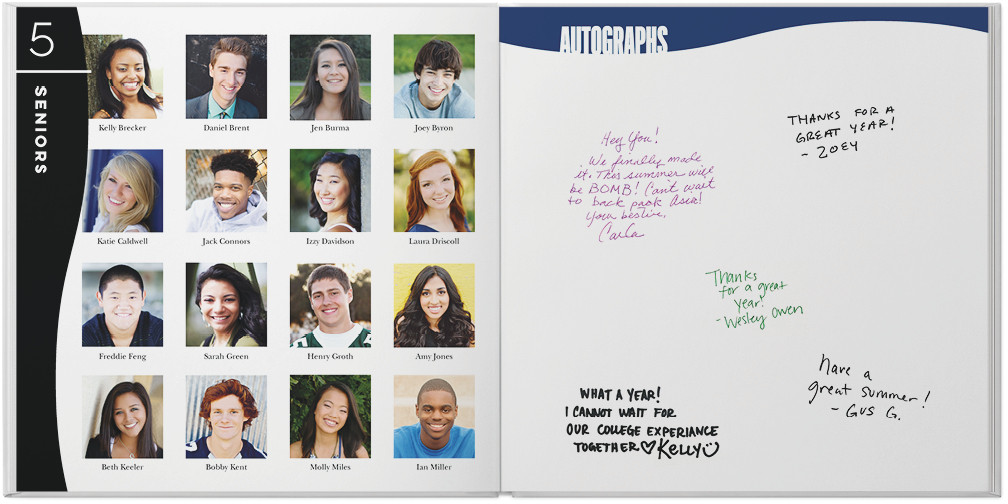 5
SENIORS
Kelly Brecker
Daniel Brent
Jen Burma
Joey Byron
Katie Caldwell
Jack Connors
Izzy Davidson
Laura Driscoll
Freddie Feng
Sarah Green
Henry Groth
Amy Jones
Beth Keeler
Bobby Kent
Molly Miles
Ian Miller
AUTOGRAPHS
THANKS FOR A
GREAT YEAR!
- ZOEY
Hey You!
We finally made
it. This summer will
be BOMB! Can't wait
to back pack Asia!
Your bestie,
Carla
Thanks
for a great
year!
- Wesley Owen
Have a
great summer!
- GUS G.
WHAT A YEAR!
I CANNOT WAIT FOR
OUR COLLEGE EXPERIENCE
TOGETHER ♡ KELLY